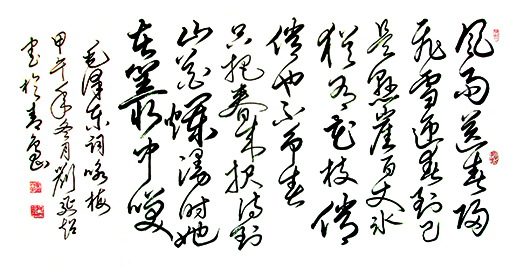 风雨送春归
飞雪迎春到已
是悬崖百丈冰
犹有花枝俏
俏也不争春
只把春来报待到
山花爛漫时她
在叢中笑
毛泽东词咏梅
甲午年冬月劉
书於青岛